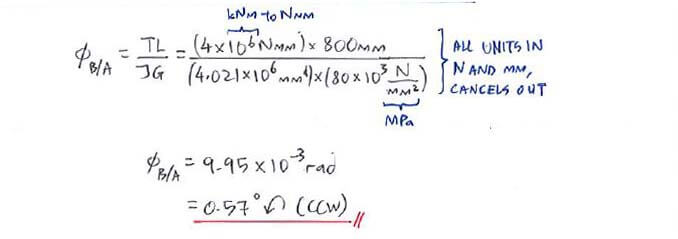 kNm-to Nmm
ϕB/A = TL/JG = (4×10⁶Nmm)×800mm / (4.021×10⁶mm⁴)×(80×10³ N/mm²)
ALL UNITS IN
N AND MM,
CANCELS OUT
MPa
ϕB/A = 9.95×10⁻³ rad
= 0.57° ↶ (CCW)